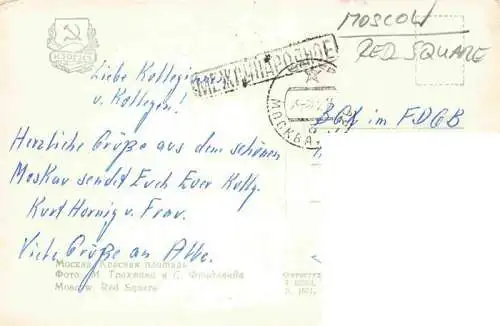 MOSCOW
RED SQUARE
МЕЖДУНАРОДНОЕ
МОСКВА
Liebe Kollegin
u. Kollegen!
BGL im FDGB
Herzliche Grüße aus dem schönen
Moskau sendet Euch Euer Kollg.
Kurt Hornig u. Frau.
Viele Grüße an Alle.
Москва. Красная площадь
Фото: М. Грахова и С. Фридлянда
Moscow. Red Square